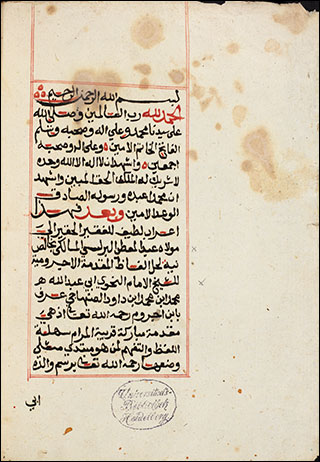 بسم الله الرحمن الرحيم
الحمد لله رب العالمين وصلى الله
على سيدنا محمد وعلى اله وصحبه وسلم
الفاتح الخاتم الامين وعلى اله وصحبه
اجمعين واشهد ان لا اله الا الله وحده
لا شريك له الملك الحق المبين واشهد
ان محمدا عبده ورسوله الصادق
الوعد الامين وبعد فهذا
اعراب لطيف للفقير الحقير الى
مولاه عبد المعطي البرلسي المالكي خالص
نية على الفاظ المقدمة الاجرومية
للشيخ الامام النحوي ابي عبد الله
محمد بن محمد بن داود الصنهاجي عرف
بابن اجروم رحمه الله تعا اذ هي
مقدمة مباركة قريبة المرام سهلة
اللفظ والتفهم لمن هو مبتدي
وضعها رحمه الله تعا برسم ولده
ابي
Universitäts-
Bibliothek
Heidelberg